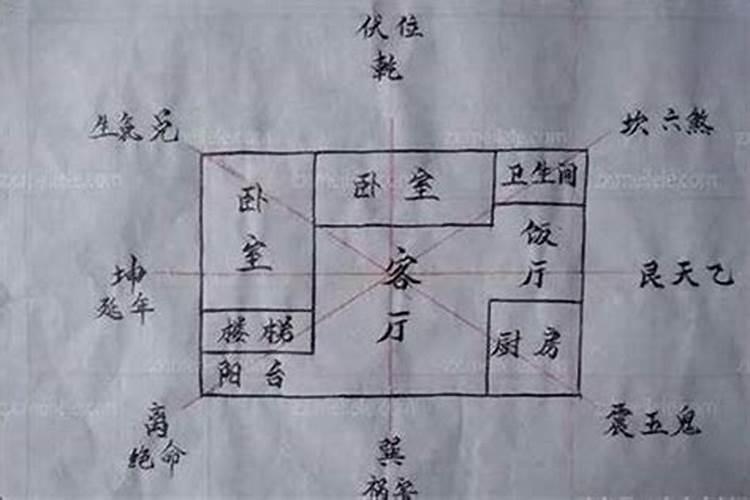 伏位
乾
生氣兑
坎六煞
卧室
卧室
卫生间
饭厅
坤
延年
客厅
艮天乙
楼梯
厨房
阳台
离
绝命
震五鬼
巽
祸害